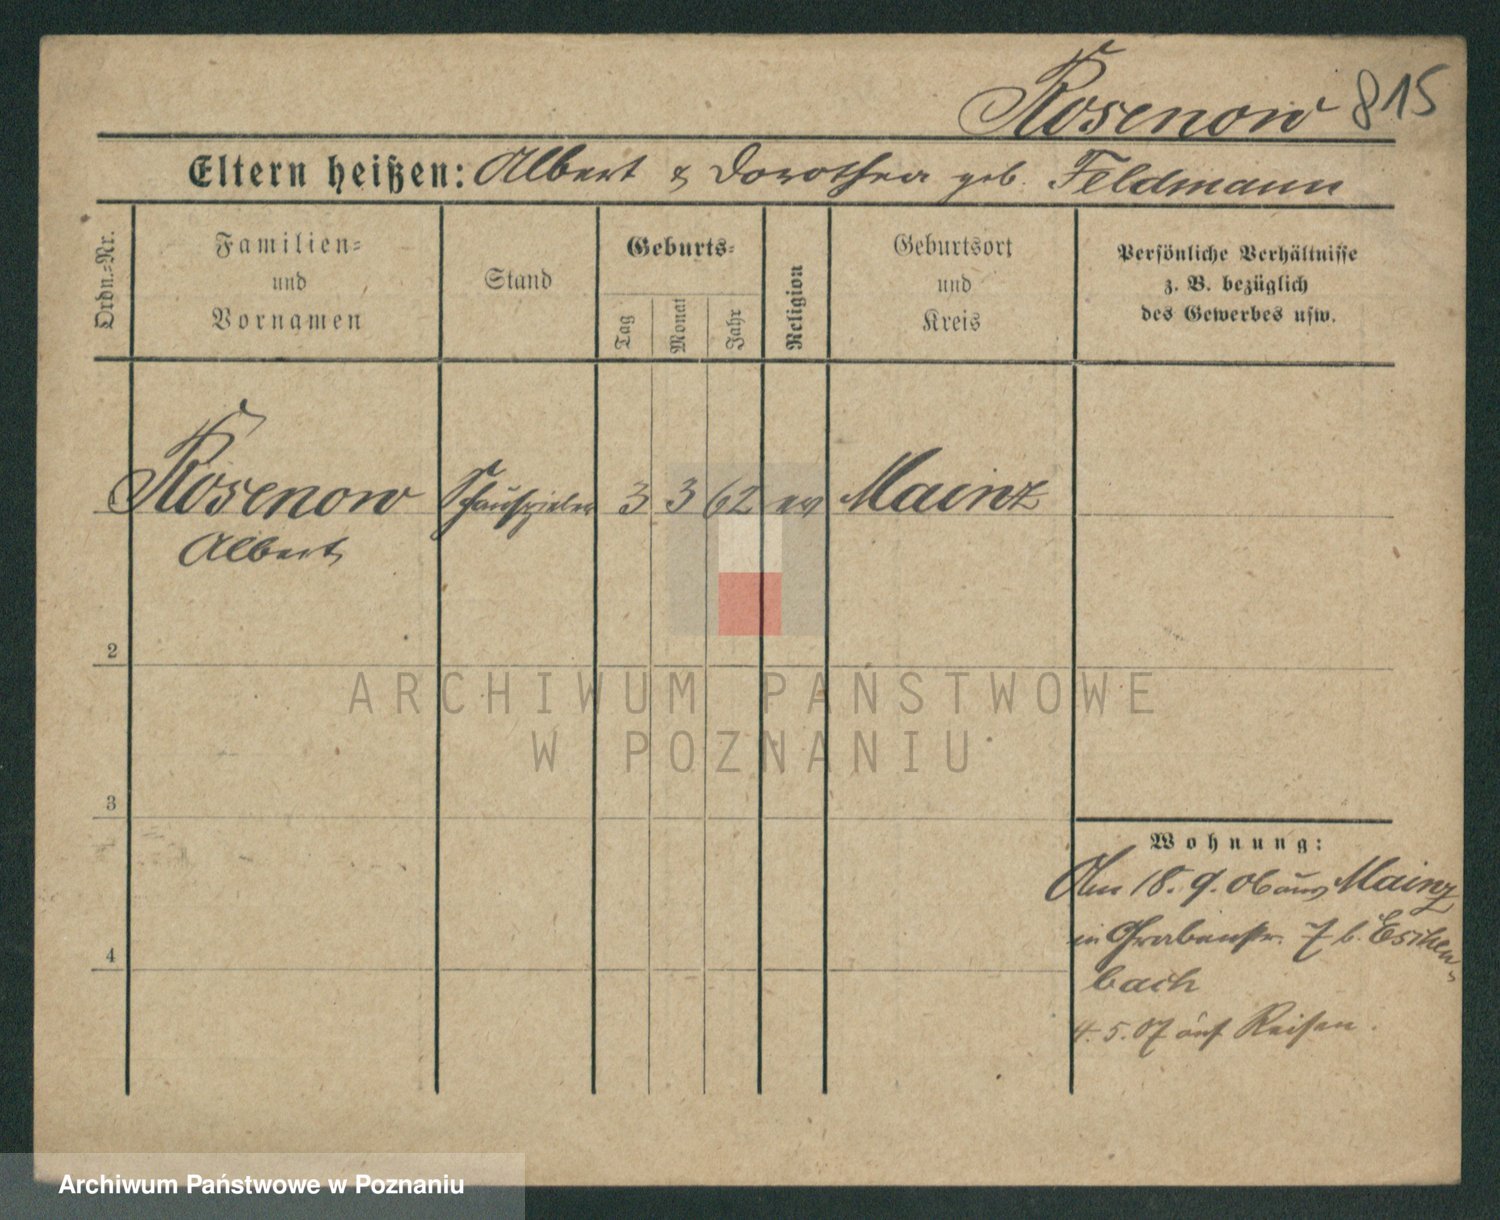 Rosenow 815
Eltern heißen: Albert & Dorothea geb. Feldmann
Ordn.-Nr.
Familien-
und
Vornamen
Stand
Geburts-
Tag
Monat
Jahr
Religion
Geburtsort
und
Kreis
Persönliche Verhältnisse
z. B. bezüglich
des Gewerbes usw.
Rosenow Schauspieler 3 3 62 ev Mainz
Albert
2
ARCHIWUM PAŃSTWOWE
W POZNANIU
3
Wohnung:
Am 18. 9. 06 aus Mainz
in Grabenstr. 7 b. Eschen-
bach
4
4. 5. 07 auf Reisen.
Archiwum Państwowe w Poznaniu